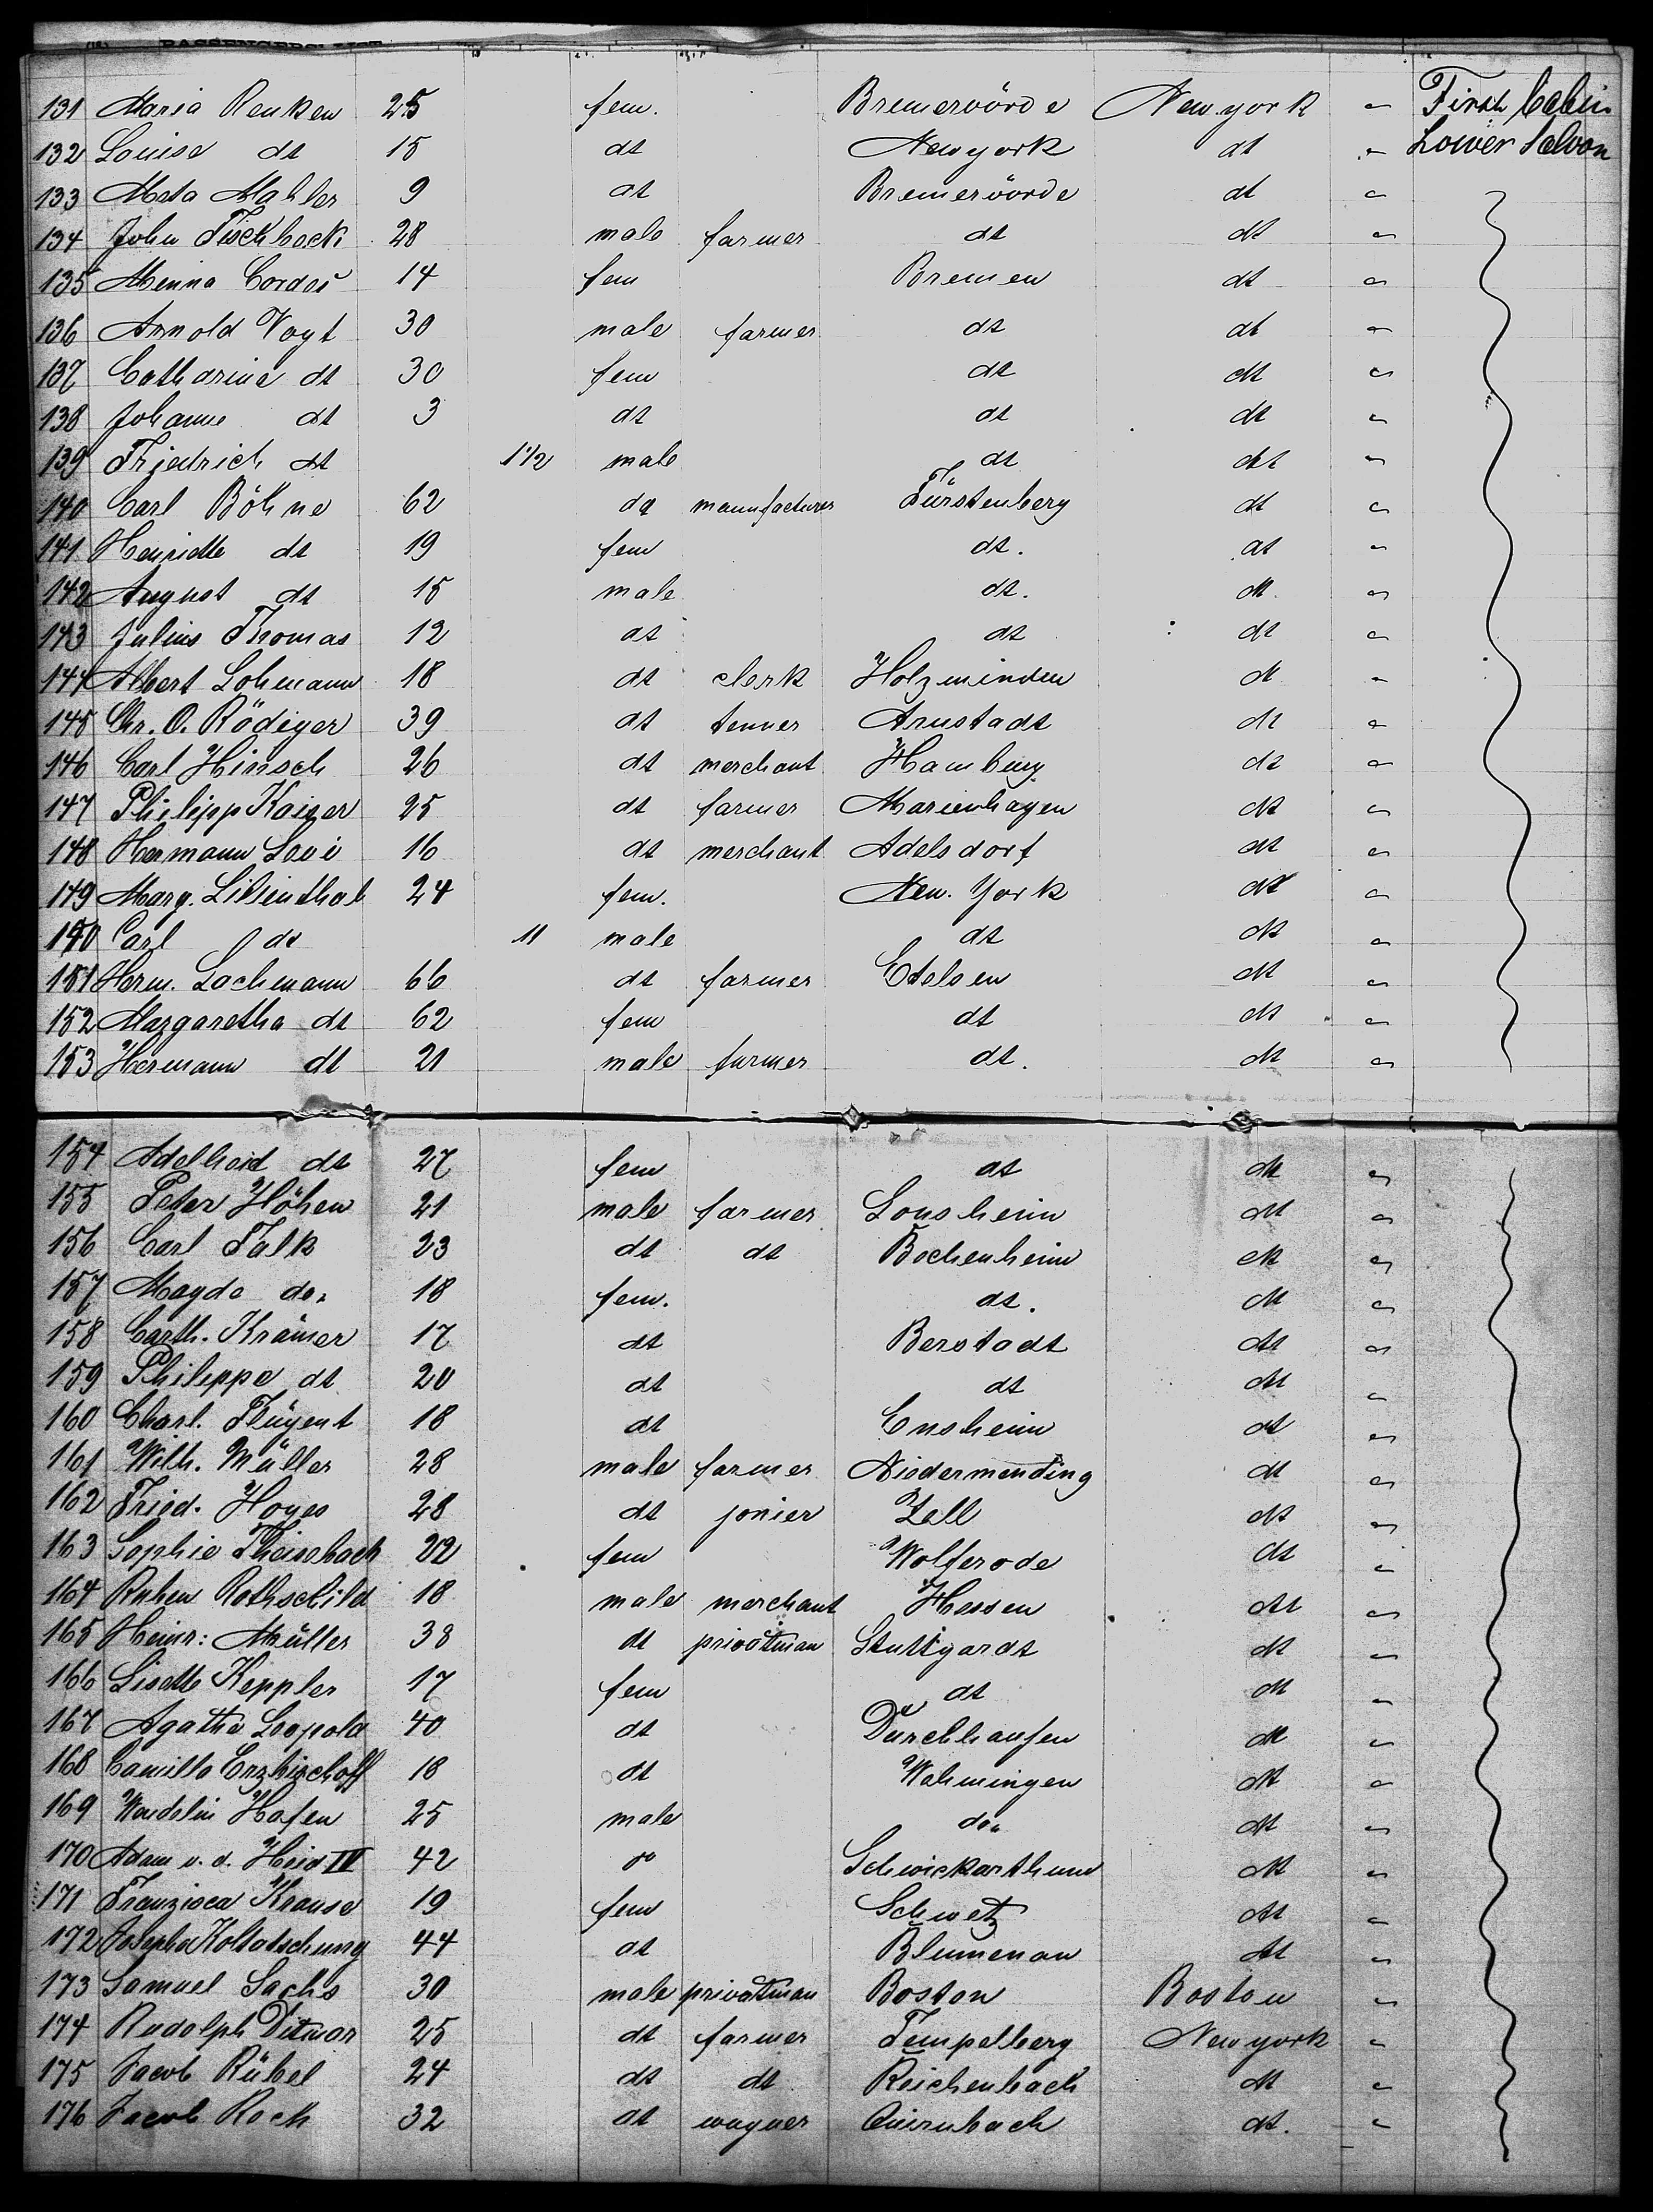 PASSENGERS' LIST
131 Maria Renken 25 fem. Bremervörde New york " First Cabin
132 Louise dt 15 dt New york dt " Lower Saloon
133 Meta Mahler 9 dt Bremervörde dt "
134 John Fischbeck 28 male farmer dt dt "
135 Menna Cordes 14 fem Bremen dt "
136 Arnold Vogt 30 male farmer dt dt "
137 Catharine dt 30 fem dt dt "
138 Johanne dt 3 dt dt dt "
139 Friedrich dt 1 1/2 male dt dt "
140 Carl Böhne 62 do manufacturer Fürstenberg dt "
141 Henriette dt 19 fem dt. dt "
142 August dt 15 male dt. dt "
143 Julius Thomas 12 dt dt dt "
144 Albert Lohmann 18 dt clerk Holzminden dt "
145 Chr. O. Rödiger 39 dt tenner Arnstadt dt "
146 Carl Hinsch 26 dt merchant Hamburg dt "
147 Philipp Kaiser 25 dt farmer Marienhagen dt "
148 Hermann Levi 16 dt merchant Adelsdorf dt "
149 Marg. Lilienthal 24 fem. New. York dt "
150 Carl dt 11 male dt dt "
151 Herm. Lachmann 66 dt farmer Etelsen dt "
152 Margaretha dt 62 fem dt dt "
153 Hermann dt 21 male farmer dt. dt "
154 Adelheid dt 27 fem dt dt "
155 Peter Höhen 21 male farmer Lonsheim dt "
156 Carl Falk 23 dt dt Bochenheim dt "
157 Magda do. 18 fem. dt. dt "
158 Carth. Krämer 17 dt Berstadt dt "
159 Philippe dt 20 dt dt dt "
160 Charl. Flügent 18 dt Ensheim dt "
161 Wilh. Müller 28 male farmer Niedermending dt "
162 Fried. Hoyes 28 dt jonier Zell dt "
163 Sophie Theisebach 22 fem Wolferode dt "
164 Ruben Rothschild 18 male merchant Hessen dt "
165 Heinr: Müller 38 dt privatman Stuttgardt dt "
166 Lisette Keppler 17 fem dt dt "
167 Agatha Leopold 40 dt Durchhausen dt "
168 Camilla Enzbischoff 18 dt Wahmingen dt "
169 Wendelin Hafen 25 male do. dt "
170 Adam v. d. Heid IV 42 do Schwickarthum dt "
171 Franzisca Krause 19 fem Schwetz dt "
172 Josepha Kollatschung 44 dt Blumenau dt "
173 Samuel Sachs 30 male privatman Boston Boston "
174 Rudolph Ditmar 25 dt farmer Tempelberg New york "
175 Jacob Rübel 24 dt dt Reichenbach dt "
176 Jacob Rock 32 dt wagner Quirnbach dt. "